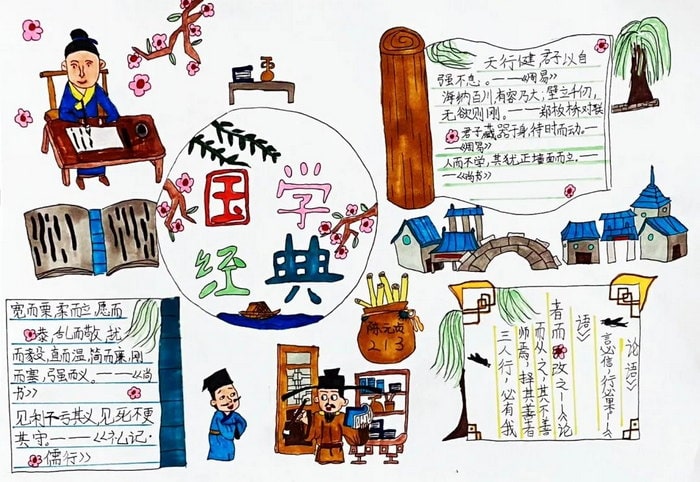 国学
经典
天行健,君子以自
强不息。——《周易》
海纳百川有容乃大;壁立千仞,
无欲则刚。——郑板桥对联
君子藏器于身,待时而动。——
《周易》
人而不学,其犹正墙面而立。——
《尚书》
宽而栗,柔而立,愿而
恭,乱而敬,扰
而毅,直而温,简而廉,刚
而塞,强而义。——《尚
书》
见利不亏其义,见死不更
其守。——《礼记·
儒行》
213
三人行,必有我
师焉,择其善者
而从之,其不善
者而改之——《论
语》
言必信,行必果——《
论语》